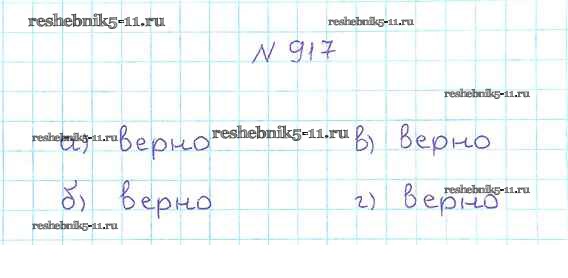 reshebnik5-11.ru reshebnik5-11.ru
N 917
reshebnik5-11.ru
reshebnik5-11.ru reshebnik5-11.ru
а) верно в) верно
reshebnik5-11.ru
б) верно г) верно
reshebnik5-11.ru